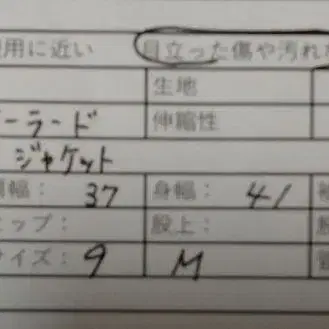 用に近い 目立った傷や汚れ
生地
ーラード 伸縮性
ジャケット
幅: 37 身幅: 41
ップ: 股上:
イズ: 9 M